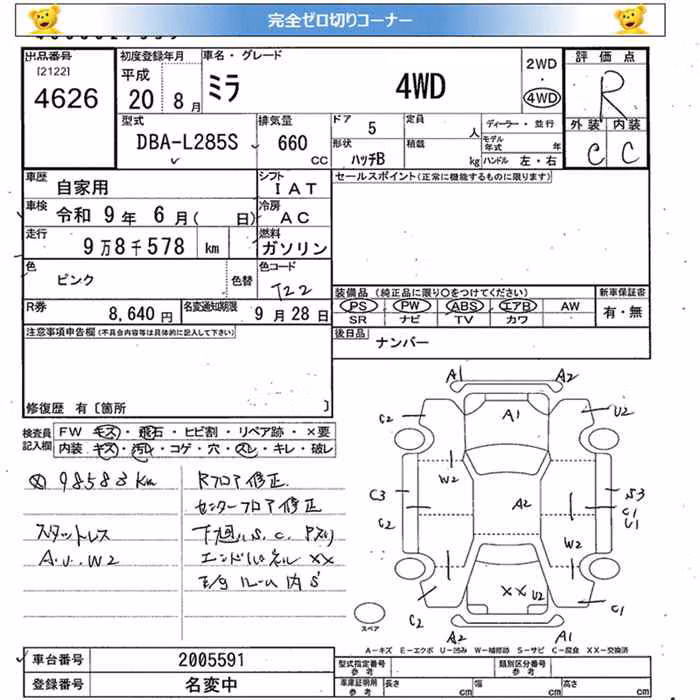 完全ゼロ切りコーナー
出品番号
[2122]
4626
初度登録年月
平成
20 8月
車名・グレード
ミラ 4WD
2WD
・
4WD
評価点
R
外装 内装
C C
型式
DBA-L285S
排気量
660
CC
ドア
5
形状
ハッチB
定員
人
積載
kg
ディーラー・並行
モデル年式 年
ハンドル 左・右
車歴
自家用
シフト
IAT
車検
令和 9年 6月( 日)
冷房
AC
走行
9万8千578 km
燃料
ガソリン
色
ピンク
色替
色コード
T22
R券
8,640円
名変通知期限
9月28日
セールスポイント(正常に機能するものに限ります)
装備品 (純正品に限り〇をつけてください)
PS PW ABS エアB AW
SR ナビ TV カワ
新車保証書
有・無
後日品
ナンバー
注意事項申告欄(不具合内容等は具体的に記入して下さい)
修復歴 有〔箇所 〕
検査員
記入欄
FW キズ・飛石・ヒビ割・リペア跡・×要
内装 キズ・汚レ・コゲ・穴・スレ・キレ・破レ
98583km
スタットレス
A.U.W2
Rフロア修正
センターフロア修正
下廻りS.C.Pスリ
エンドパネルXX
E/gルーム内S
A1 A2
C2 A1 U2
W2
C3 A2 S3
C1
C2 U1
W2
XX U2
C2 C1
A2 A1
スペア
A-キズ E-エクボ U-凹み W-補修跡 S-サビ C-腐食 XX-交換済
車台番号
2005591
登録番号
名変中
型式指定番号
参考
類別区分番号
参考
車庫証明用
参考
長さ cm 幅 cm 高さ cm